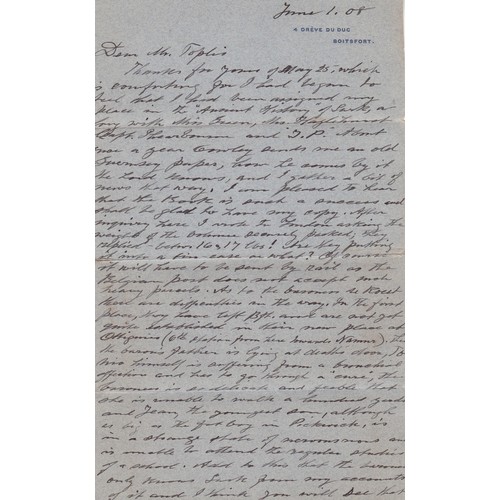 June 1. 08
4 DRÈVE DU DUC
BOITSFORT.
Dear Mr. Toplis
Thanks for yours of May 25, which
is comforting for I had begun to
feel that I had been assigned my
place in the "Ancient History of Sark", a
long with Miss Green, Mrs
and T.P. About
once a year Cowley sends me an old
Guernsey paper, how he comes by it
the Lord knows, and I gather a bit of
news that way. I am pleased to hear
that the Book is such a success and
shall be glad to have my copy. After
inquiry here I wrote to London asking the
weight of the volume securely packed, they
replied between 16 & 17 lbs! Are they putting
it into a tin case or what? Of course
it will have to be sent by rail as the
Belgian Post does not accept such
heavy parcels. As to the baroness de
there are difficulties in the way. In the first
place, they have left Bft. and are not yet
quite established in their new place at
Ottignies (6th station from here towards Namur). The
the barons father is lying at deaths door,
himself is suffering from a bronchial
affection and has to go through a "cure", the
baroness is so delicate and feeble that
she is unable to walk a hundred yards
and Jean, the youngest son, although
as big as the fat boy in Pickwick, is
in a strange state of nervousness and
is unable to attend the regular studies
of a school. Add to this that the baroness
only knows Sark from my accounts
of it and I think you will see the